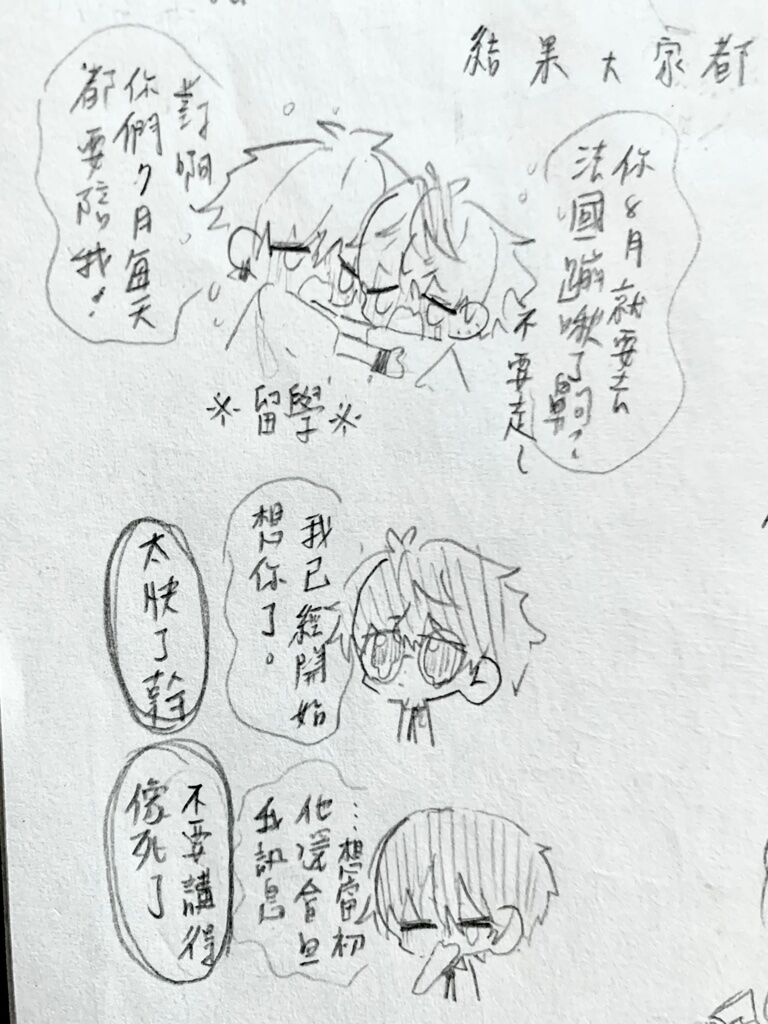 結果大家都
你8月就要去
法國蹦啾了
不要走~
對啊
你們7月每天
都要陪我!
※留學※
我已經開始
想你了。
太快了幹
…想當初
他還會回
我訊息
不要講得
像死了